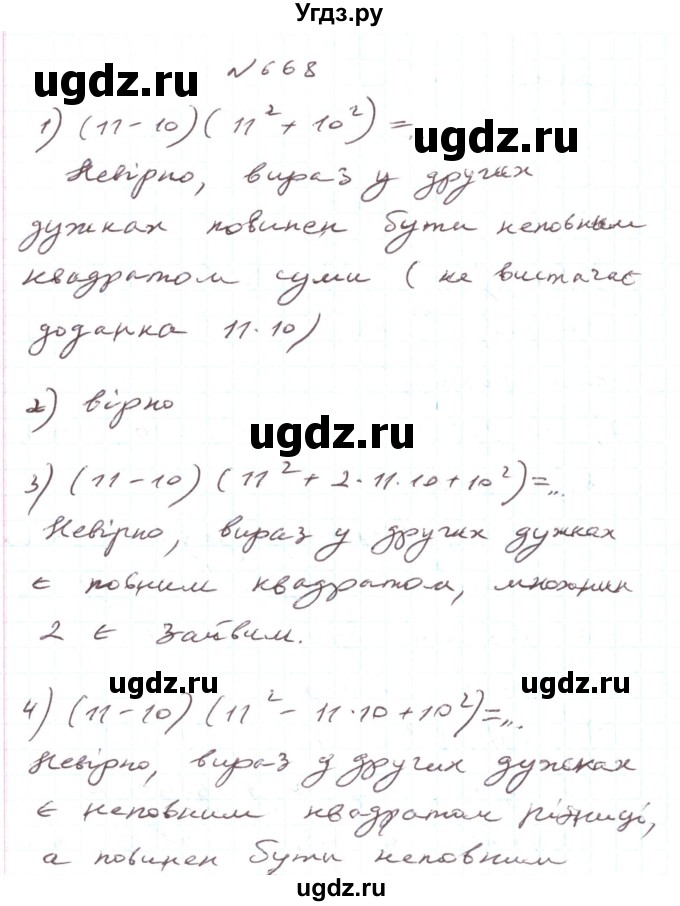 Угдз.ру
ugdz.ru
№668
1) (11-10)(11² + 10²) = ugdz.ru
Невірно, вираз у других
дужках повинен бути неповним
квадратом суми (не вистачає
доданка 11·10)
2) вірно
ugdz.ru
3) (11-10)(11² + 2·11·10+10²)=...
Невірно, вираз у других дужках
є повним квадратом, множник
2 є зайвим.
ugdz.ru ugdz.ru
4) (11-10)(11² - 11·10+10²)=...
Невірно, вираз д других дужках
є неповним квадратом різниці,
а повинен бути неповним
ugdz.ru